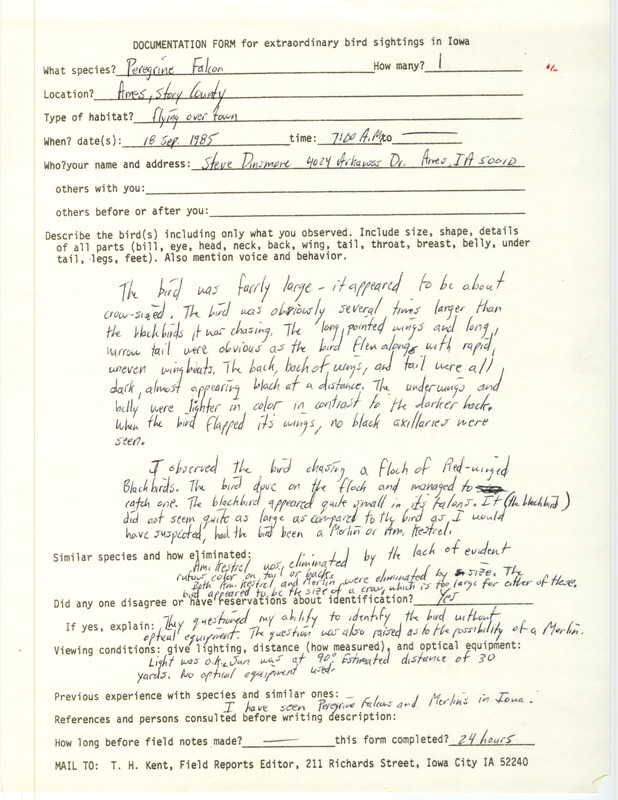 DOCUMENTATION FORM for extraordinary bird sightings in Iowa
What species? Peregrine Falcon How many? 1
+/-
Location? Ames, Story County
Type of habitat? flying over town
When? date(s): 18 Sep. 1985 time: 7:00 A.M. to
Who?your name and address: Steve Dinsmore 4024 Arkansas Dr. Ames, IA 50010
others with you:
others before or after you:
Describe the bird(s) including only what you observed. Include size, shape, details
of all parts (bill, eye, head, neck, back, wing, tail, throat, breast, belly, under
tail, legs, feet). Also mention voice and behavior.
The bird was fairly large - it appeared to be about
crow-sized. The bird was obviously several times larger than
the blackbirds it was chasing. The long, pointed wings and long,
narrow tail were obvious as the bird flew along with rapid,
uneven wingbeats. The back, back of wings, and tail were all
dark, almost appearing black at a distance. The underwings and
belly were lighter in color in contrast to the darker back.
When the bird flapped it's wings, no black axillaries were
seen.
I observed the bird chasing a flock of Red-winged
Blackbirds. The bird dove on the flock and managed to
catch one. The blackbird appeared quite small in its talons. It (the blackbird)
did not seem quite as large as compared to the bird as I would
have suspected, had the bird been a Merlin or Am. Kestrel.
Similar species and how eliminated: Am. Kestrel was eliminated by the lack of evident
rufous color on tail or back.
Both Am. Kestrel and Merlin were eliminated by size. The
bird appeared to be the size of a crow, which is too large for either of these.
Did any one disagree or have reservations about identification? Yes
If yes, explain: They questioned my ability to identify the bird without
optical equipment. The question was also raised as to the possibility of a Merlin.
Viewing conditions: give lighting, distance (how measured), and optical equipment:
Light was o.k. Sun was at 90°. Estimated distance of 30
yards. No optical equipment used.
Previous experience with species and similar ones:
I have seen Peregrine Falcons and Merlins in Iowa.
References and persons consulted before writing description:
How long before field notes made? this form completed? 24 hours
MAIL TO: T. H. Kent, Field Reports Editor, 211 Richards Street, Iowa City IA 52240